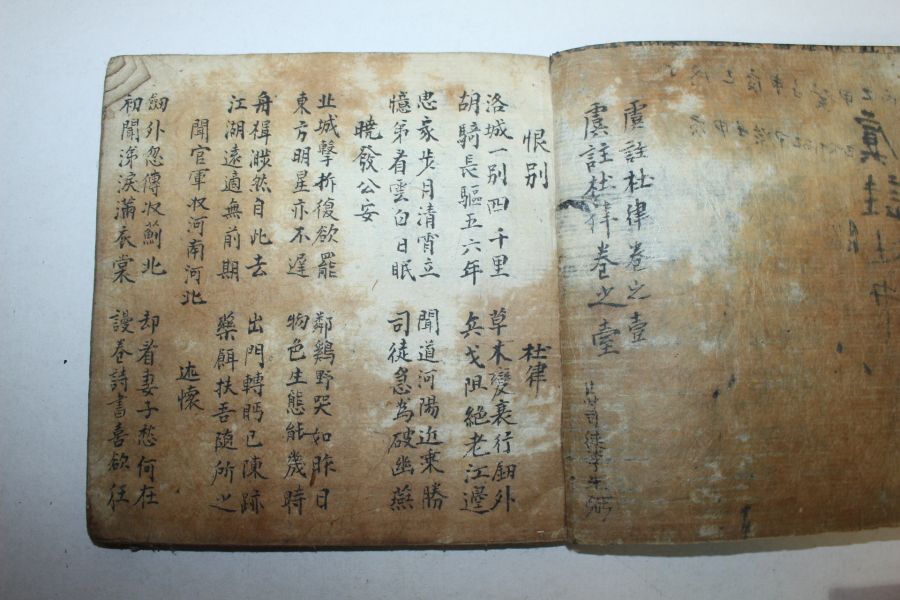 虞註杜律卷之壹
虞註杜律卷之壹
恨別 杜律
洛城一別四千里 草木變衰行釼外
胡騎長驅五六年 兵戈阻絶老江邊
思家步月清宵立 聞道河陽近乗勝
憶弟看雲白日眠 司徒急為破幽燕
曉發公安
北城擊柝復欲罷 鄰鷄野哭如昨日
東方明星亦不遲 物色生態能幾時
舟楫渺然自此去 出門轉眄已陳跡
江湖遠適無前期 藥餌扶吾隨所之
聞官軍収河南河北 述懷
釼外忽傳収薊北 却看妻子愁何在
初聞涕淚滿衣裳 謾卷詩書喜欲狂